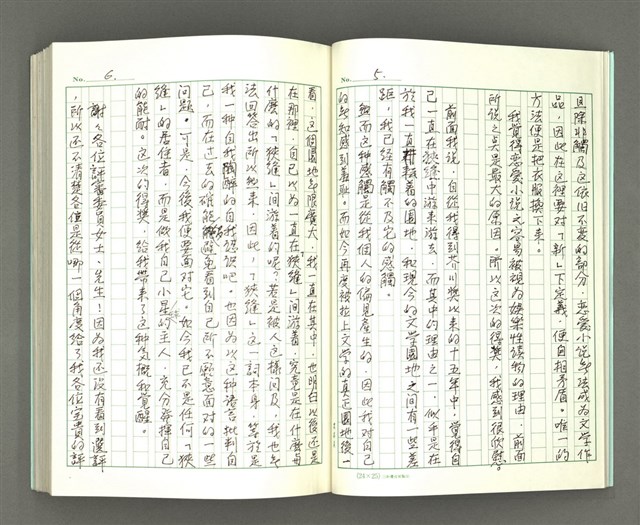 No. 5.
且除非觸及这依旧不变的部分，恋爱小说無法成為文学作
品，因此在这裡要对「新」下定義，便自相矛盾。唯一的
方法便是把衣服換下来。
我覺得恋爱小说尤容易被視為娛樂性讀物的理由，前面
所说之点是最大的原因。所以这次的得獎，我感到很欣慰。
前面我说，自從我得到芥川獎以来的十五年中，覺得自
己一直在狹縫中游来游去，而其中的理由之一，似乎是在
於我一直耕耘着的園地，和現今的文学園地之间有一些差
距，我已經有觸不及它的感觸。
然而这种感觸是從我個人的偏見產生的，因此我对自己
的無知感到羞恥。而如今再度被拉上文学的真正園地後一
No. 6.
看，这個園地無限廣大，我一直在其中，也明白以後还是
在那裡，自己以為一直在「狹縫」间游着，究竟是在什麼与
什麼的「狹縫」间游着的呢？若是被人这樣问及，我也無
法回答出所以然来，因此，「狹縫」这一詞本身，等於是
我一种自我陶醉的自我認飯吧。也因為以这种語言批判自
己，而在过去的雖能避免看到自己所不願意面对的一些
问題。可是，今後我便要面对它。如今我已不是任何「狹
縫」的居住者，而是做我自己小星球的主人，充分發揮自己
的能耐。这次的得獎，給我帶来了这种氣概和覚醒。
謝々各位評審委員女士、先生！因為我还沒有看到選評
，所以还不清楚各位是從哪一個角度給了我各位宝貴的評
(24×25)